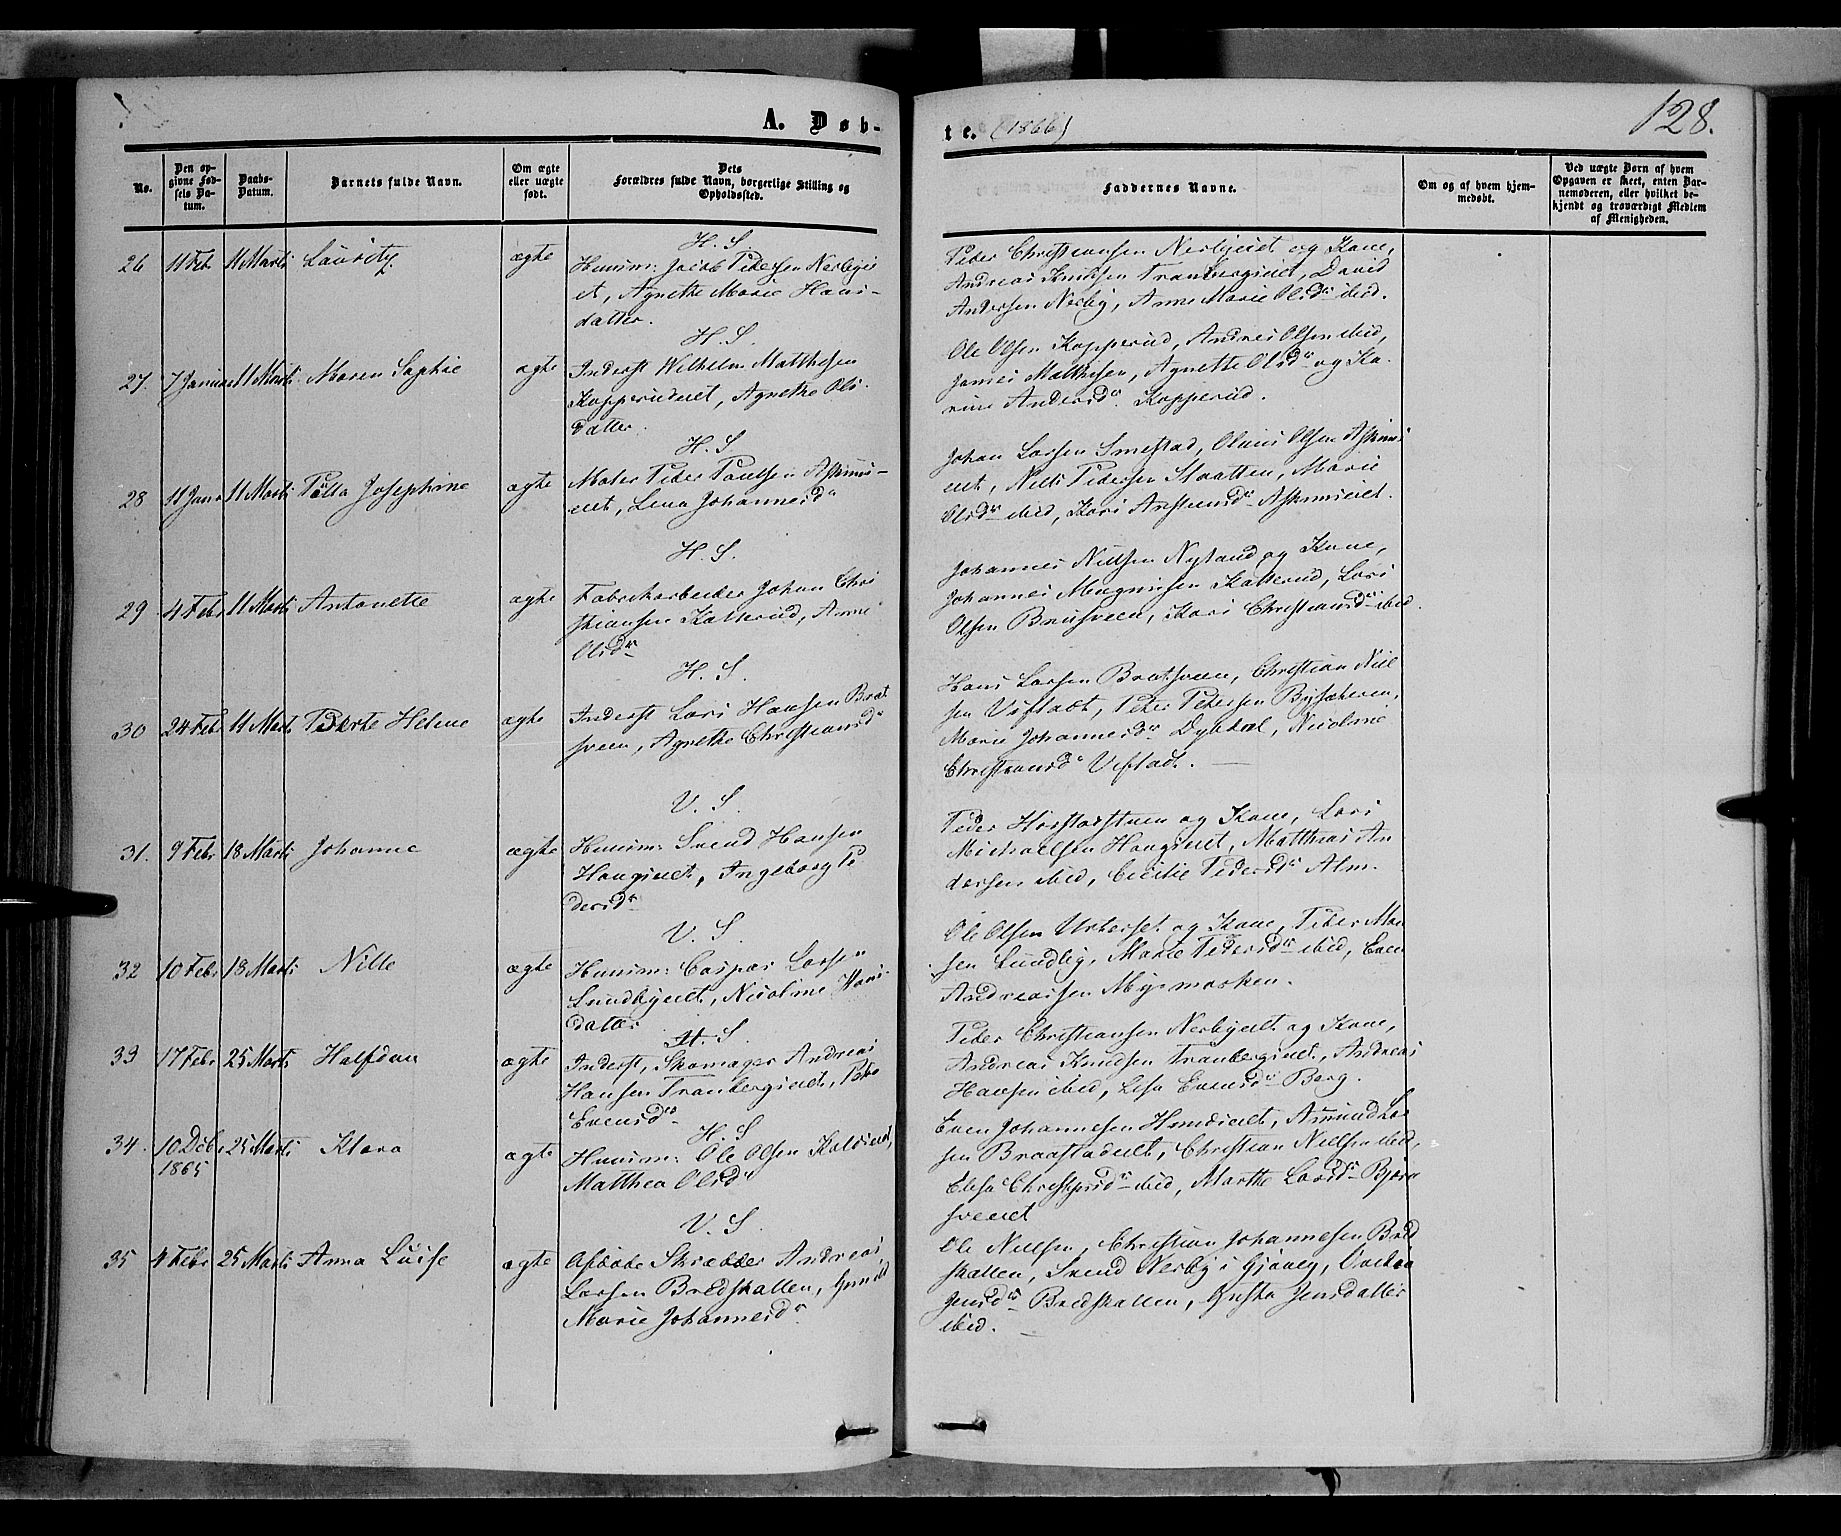 A. Døb-
te. (1866)
128.
No.
Den op-
givne Fød-
sels Da-
tum.
Daabs-
Datum.
Barnets fulde Navn.
Om ægte
eller uægte
født.
Dets
Forældres fulde Navn, borgerlige Stilling og
Opholdssted.
Faddernes Navne.
Om og af hvem hjem-
medøbt.
Ved uægte Børn af hvem
Opgaven er skeet, enten Bar-
nemoderen, eller hvilket be-
kjendt og troværdigt Medlem
af Menigheden.
26 11 Feb 11 Marts Lauritz. ægte
H. S.
Huusm: Jacob Pedersen Nerbyei
et, Agnethe Marie Hans-
datter.
Peder Christiansen Nerbyeiet og Kone,
Andreas Knudsen Tranbergeiet, David
Andersen Nerby, Anne Marie Olsdr ibid.
27. 7 Januar 11 Marts Maren Sophie ægte
H. S.
Inderst Wilhelm Matthesen
Kopperudeiet, Agnethe Ols-
datter.
Ole Olsen Kopperud, Andreas Olsen ibid,
Johannes Matthesen, Agnethe Olsdr og Ka-
rine Andersdr Kopperud.
28 11 Janu 11 Marts Josephine ægte
H. S.
Maler Peder Paulsen
eiet, Lena Johannesdr
Johan Larsen Smestad, Olaus Olsen
eiet, Nils Pedersen Slaatten, Marie
Olsdr ibid, Kari
29 4 Febr 11 Marts Antonette ægte
H. S.
Fabrikarbeider Johan Chri
stiansen Kallerud, Anne
Olsdr
Johannes Nielsen Nyland og Kone,
Johannes Magnusen Kallerud, Lars
Olsen Brusveen, Kari Christiansdr ibid.
30 24 Febr 11 Marts Helene ægte
H. S.
Inderst Lars Hansen Brat
sveen, Agnethe Christiansdr
Hans Larsen Bratsveen, Christian Niel
sen Vistad, Peter Petersen
Marie Johannesdr Dyhdal, Nicoline
Christiansdr Vistad.
31. 9 Febr 18 Marts Johanne ægte
V. S.
Huusm: Svend Hansen
Haugseiet, Ingeborg Pe
dersdr
Peder Horstadstuen og Kone, Lars
Michaelsen Haugseiet, Matthias An
dersen ibid, Cicilie Pedersdr Alm.
32 10 Febr 18 Marts Nille ægte
V. S.
Huusm: Caspar Larsen
Lundbyeiet, Nicoline Hans-
datter
Ole Olsen og Kone, Peder
sen Lundby, Marie Pedersdr ibid, Even
Andreassen
33 17 Febr 25 Marts Halfdan ægte
H. S.
Inderst, Skomager Andreas
Hansen Tranbergeiet,
Evensdr
Peder Christiansen Nerbyeiet og Kone,
Andreas Knudsen Tranbergeiet, Andreas
Hansen ibid, Lisa Evensdr Berg.
34. 10 Decb 25 Marts Klara ægte
1865
H. S.
Huusm: Ole Olsen
Matthea Olsdr
Even Johannesen Hundseiet, Amund Lar
sen Braastadeiet, Christian Nielsen ibid,
Elisa ibid, Marthe Larsdr Bjørn
sveeiet
35 4 Febr 25 Marts Anna Luise ægte
V. S.
Afdøde Skrædder Andreas
Larsen Bredskallen,
Marie Johannesdr
Ole Nielsen, Christian Johannesen Bred
skallen, Svend Nerby i Gjøvig,
Jensdr Bredskallen, Jensdatter
ibid.